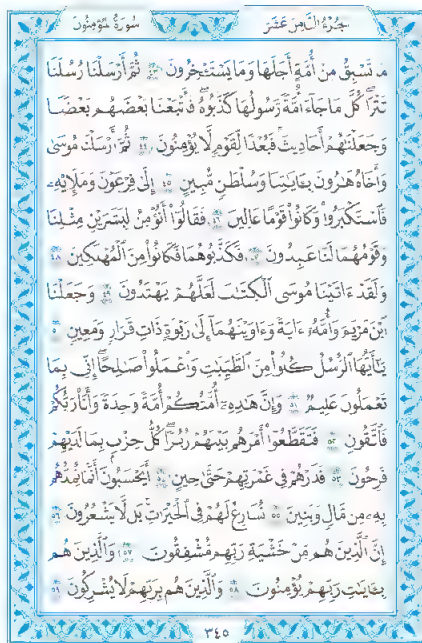 الجزء الثامن عشر سورة المؤمنون
مَا تَسْبِقُ مِنْ أُمَّةٍ أَجَلَهَا وَمَا يَسْتَـْٔخِرُونَ ٤٣ ثُمَّ أَرْسَلْنَا رُسُلَنَا
تَتْرَا كُلَّ مَا جَآءَ أُمَّةً رَّسُولُهَا كَذَّبُوهُ فَأَتْبَعْنَا بَعْضَهُم بَعْضًا
وَجَعَلْنَٰهُمْ أَحَادِيثَ فَبُعْدًا لِّقَوْمٍ لَّا يُؤْمِنُونَ ٤٤ ثُمَّ أَرْسَلْنَا مُوسَىٰ
وَأَخَاهُ هَٰرُونَ بِـَٔايَٰتِنَا وَسُلْطَٰنٍ مُّبِينٍ ٤٥ إِلَىٰ فِرْعَوْنَ وَمَلَإِي۟هِۦ
فَٱسْتَكْبَرُوا۟ وَكَانُوا۟ قَوْمًا عَالِينَ ٤٦ فَقَالُوٓا۟ أَنُؤْمِنُ لِبَشَرَيْنِ مِثْلِنَا
وَقَوْمُهُمَا لَنَا عَٰبِدُونَ ٤٧ فَكَذَّبُوهُمَا فَكَانُوا۟ مِنَ ٱلْمُهْلَكِينَ ٤٨
وَلَقَدْ ءَاتَيْنَا مُوسَى ٱلْكِتَٰبَ لَعَلَّهُمْ يَهْتَدُونَ ٤٩ وَجَعَلْنَا
ٱبْنَ مَرْيَمَ وَأُمَّهُۥٓ ءَايَةً وَءَاوَيْنَٰهُمَآ إِلَىٰ رَبْوَةٍ ذَاتِ قَرَارٍ وَمَعِينٍ ٥٠
يَٰٓأَيُّهَا ٱلرُّسُلُ كُلُوا۟ مِنَ ٱلطَّيِّبَٰتِ وَٱعْمَلُوا۟ صَٰلِحًا إِنِّى بِمَا
تَعْمَلُونَ عَلِيمٌ ٥١ وَإِنَّ هَٰذِهِۦٓ أُمَّتُكُمْ أُمَّةً وَٰحِدَةً وَأَنَا۠ رَبُّكُمْ
فَٱتَّقُونِ ٥٢ فَتَقَطَّعُوٓا۟ أَمْرَهُم بَيْنَهُمْ زُبُرًا كُلُّ حِزْبٍۭ بِمَا لَدَيْهِمْ
فَرِحُونَ ٥٣ فَذَرْهُمْ فِى غَمْرَتِهِمْ حَتَّىٰ حِينٍ ٥٤ أَيَحْسَبُونَ أَنَّمَا نُمِدُّهُم
بِهِۦ مِن مَّالٍ وَبَنِينَ ٥٥ نُسَارِعُ لَهُمْ فِى ٱلْخَيْرَٰتِ بَل لَّا يَشْعُرُونَ ٥٦
إِنَّ ٱلَّذِينَ هُم مِّنْ خَشْيَةِ رَبِّهِم مُّشْفِقُونَ ٥٧ وَٱلَّذِينَ هُم
بِـَٔايَٰتِ رَبِّهِمْ يُؤْمِنُونَ ٥٨ وَٱلَّذِينَ هُم بِرَبِّهِمْ لَا يُشْرِكُونَ ٥٩
٣٤٥